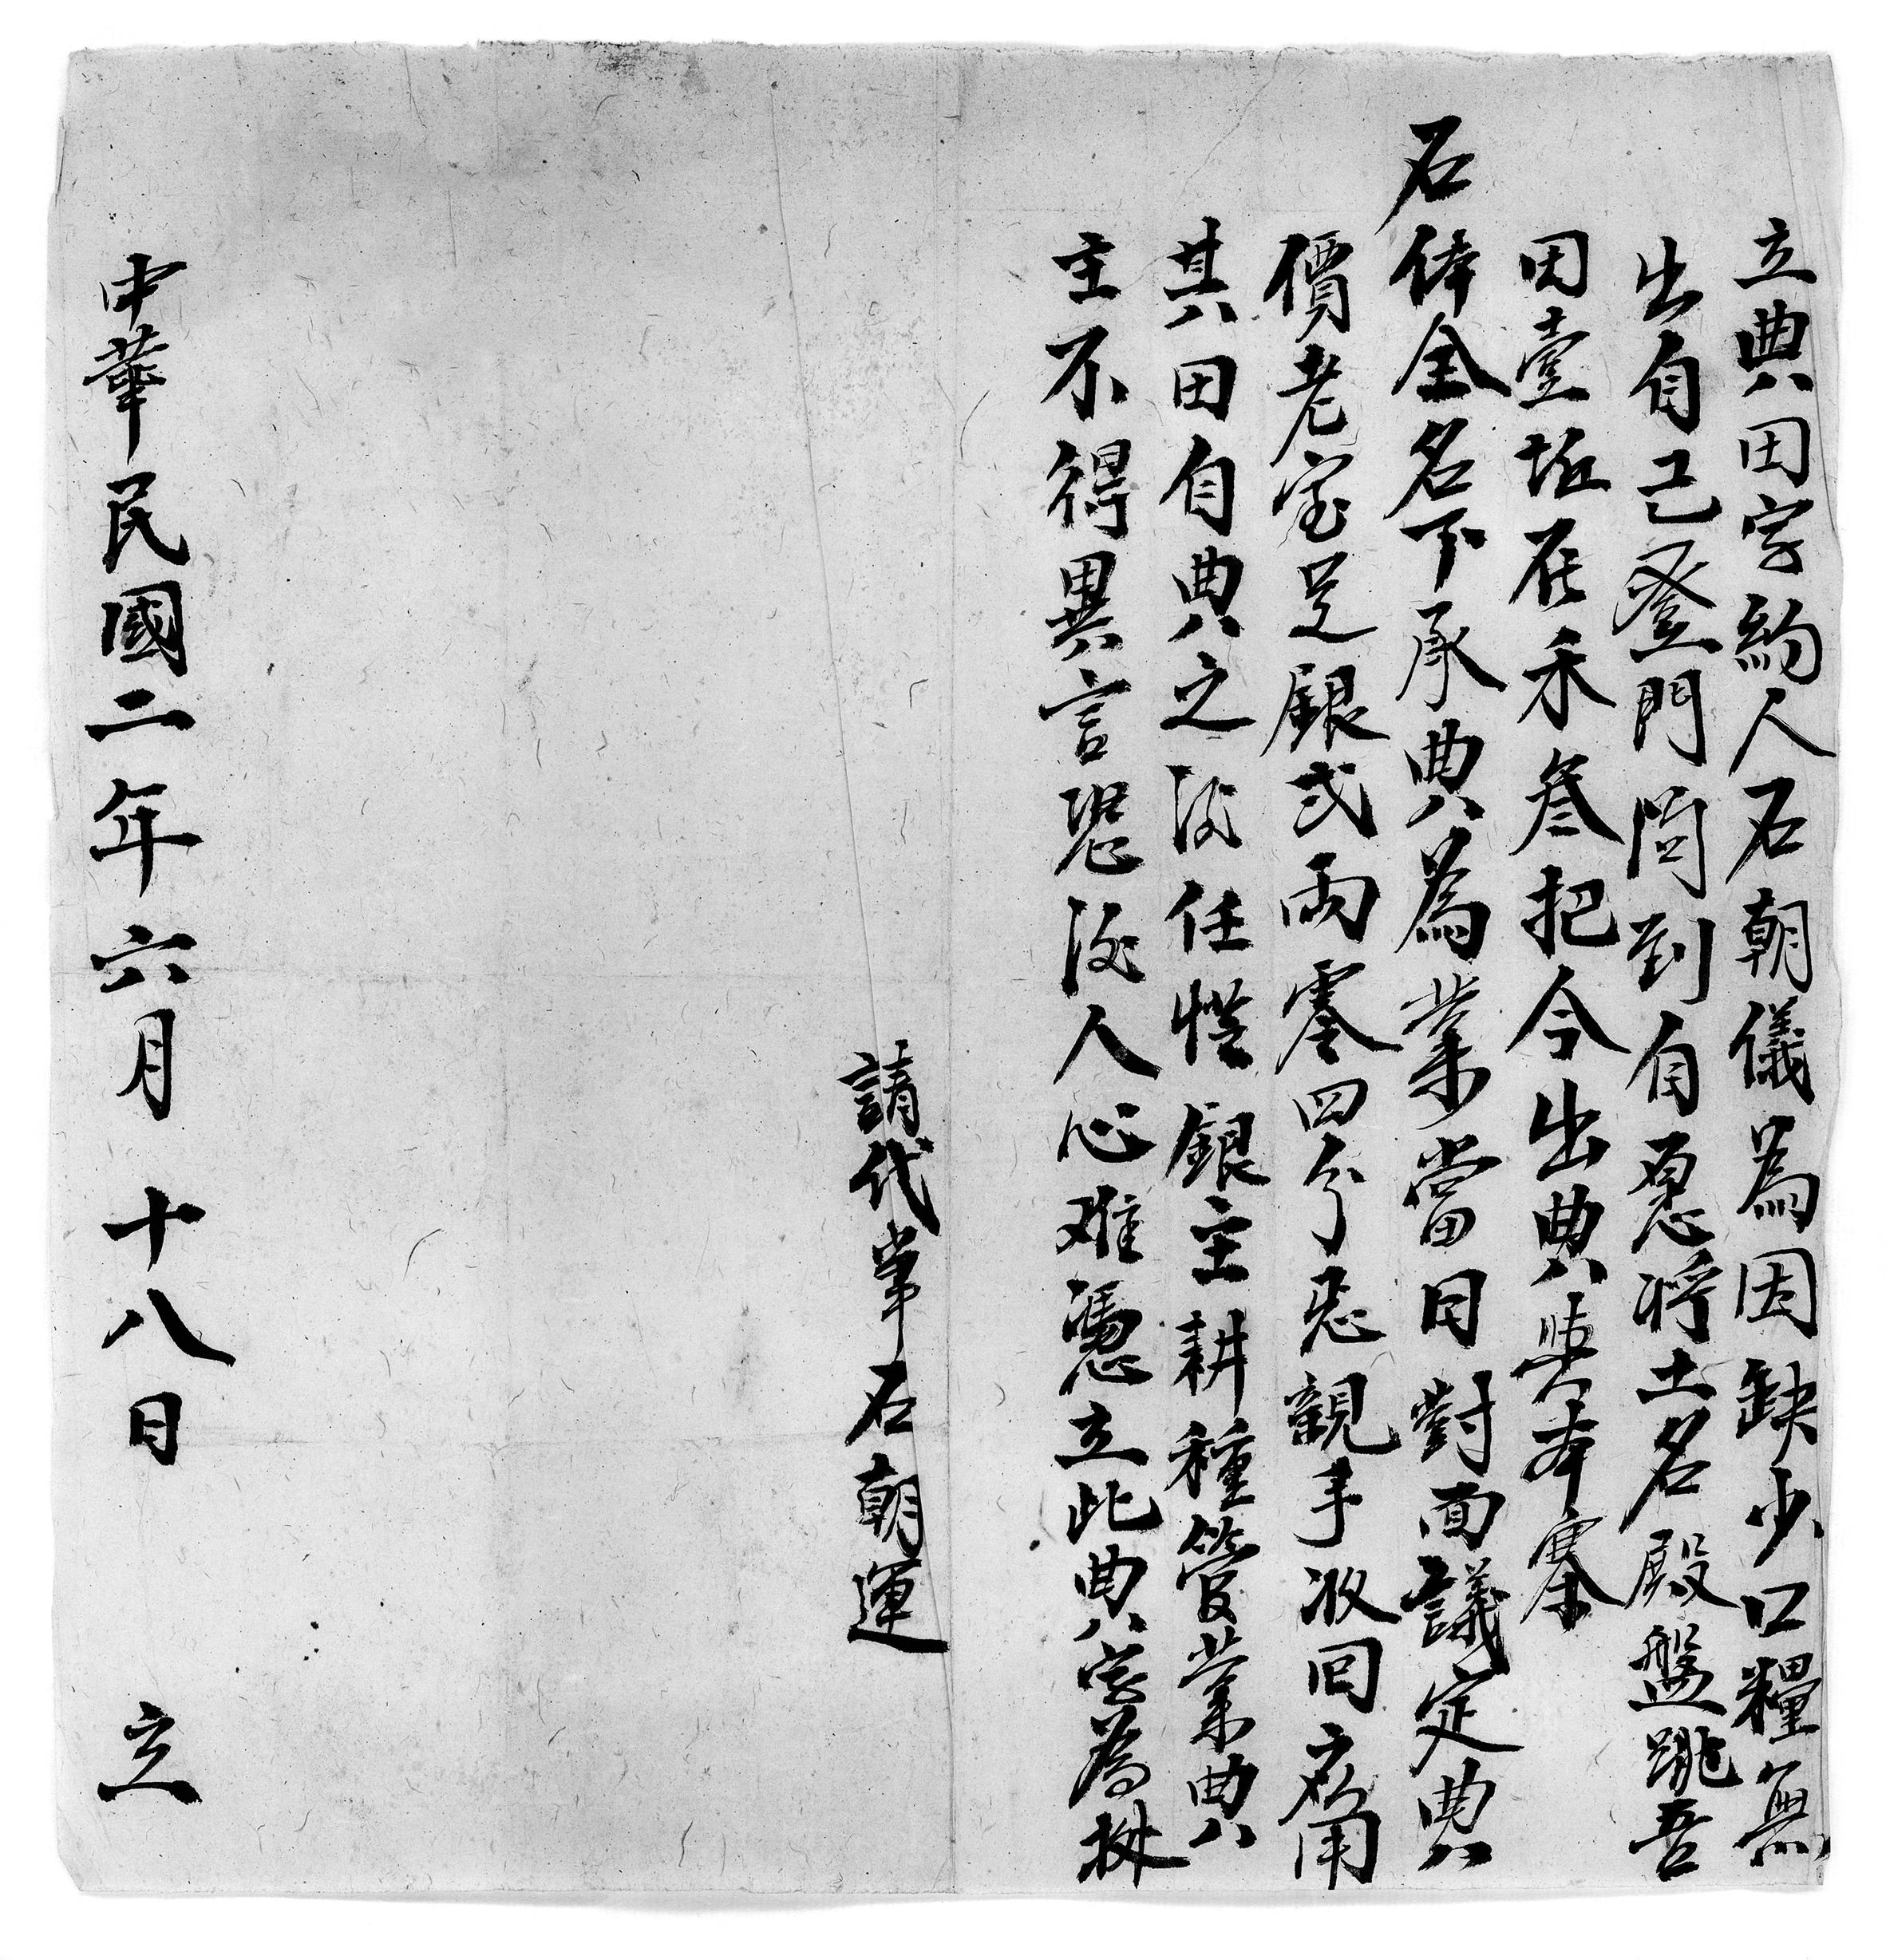 立典田字約人石朝儀為因缺少口糧無
出自己登門問到自愿將土名殿盤跳吾
田壹坵在禾叁把今出典與本寨
石俸金名下承典為業當日對面議定典
價老宝足銀弍兩零四分恁親手收回应用
其田自典之後任憑銀主耕種管業典
主不得異言恐後人心难憑立此典字為挷
請代筆石朝運
中華民國二年六月十八日立